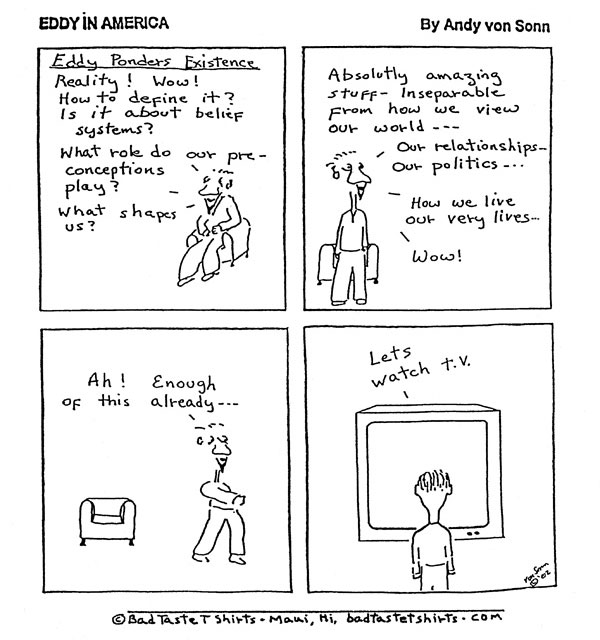 EDDY IN AMERICA
By Andy von Sonn
Eddy Ponders Existence
Reality! Wow!
How to define it?
Is it about belief
systems?
What role do our pre-
conceptions
play?
What shapes
us?
Absolutly amazing
stuff- Inseparable
from how we view
our world ---
Our relationships--
Our politics -..
How we live
our very lives...
Wow!
Ah! Enough
of this already---
Lets
watch t.v.
von Sonn
© '02
© Bad Taste T Shirts - Maui, Hi, badtastetshirts.com